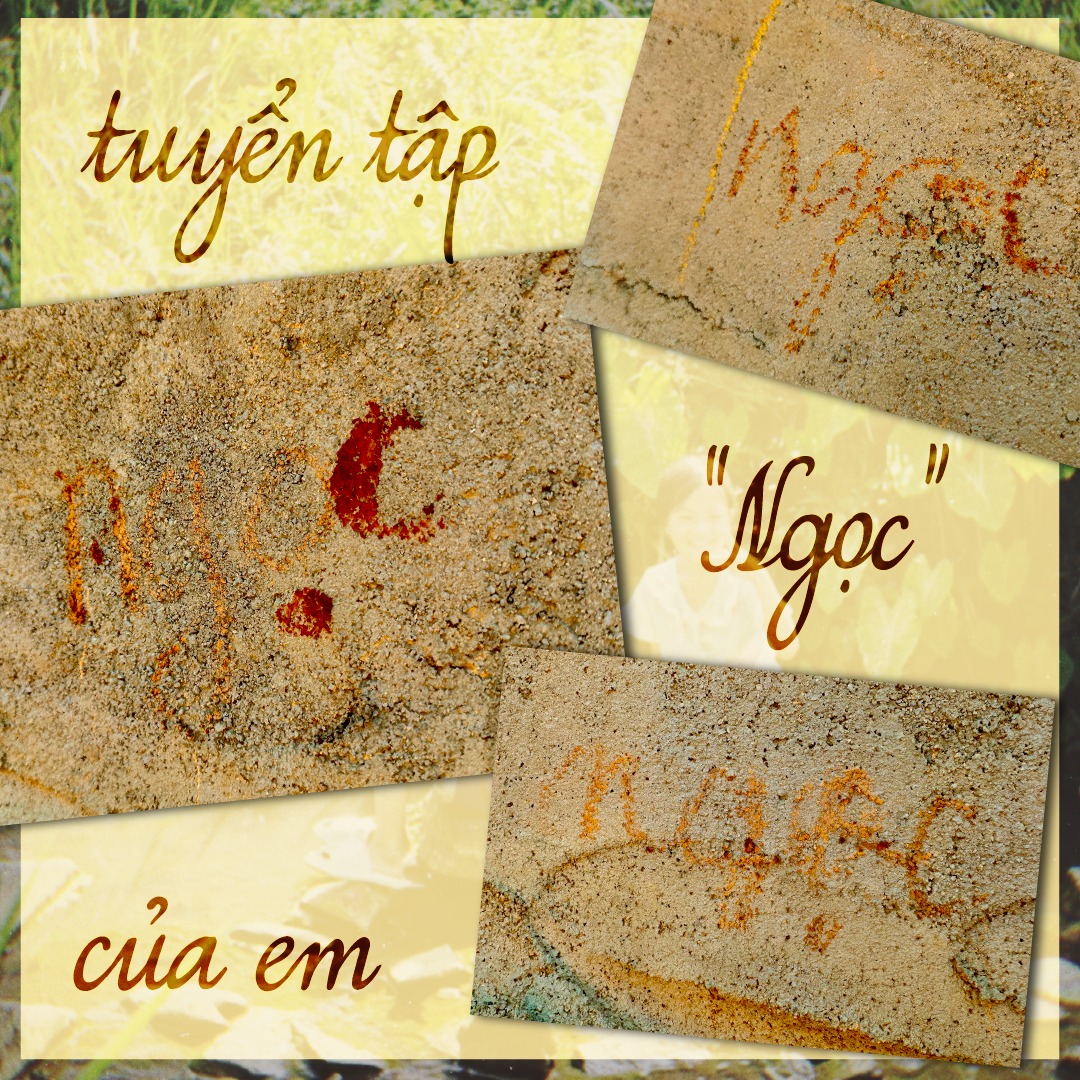 tuyển tập
Ngọc
Ngọc
"Ngọc"
Ngọc
của em